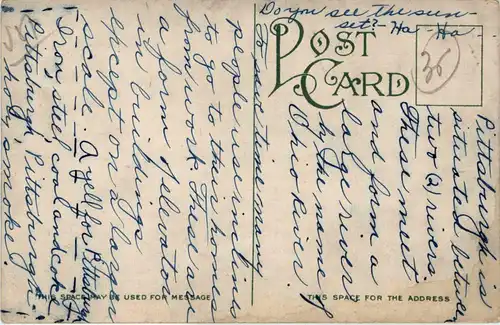 Do you see the sun
set? - Ha - Ha -
POST
CARD
36
Pittsburgh is
situated between
two (2) rivers.
These meet
and form a
large river
by the name
Ohio River.
To save time many
people use inclines
to go to their homes
from work. These are
a form of elevator
in buildings
except on a larger
scale. A yell for Pittsburgh
Iron, steel coal and coke
Pittsburgh, Pittsburgh
holy smoke.
THIS SPACE MAY BE USED FOR MESSAGE
THIS SPACE FOR THE ADDRESS